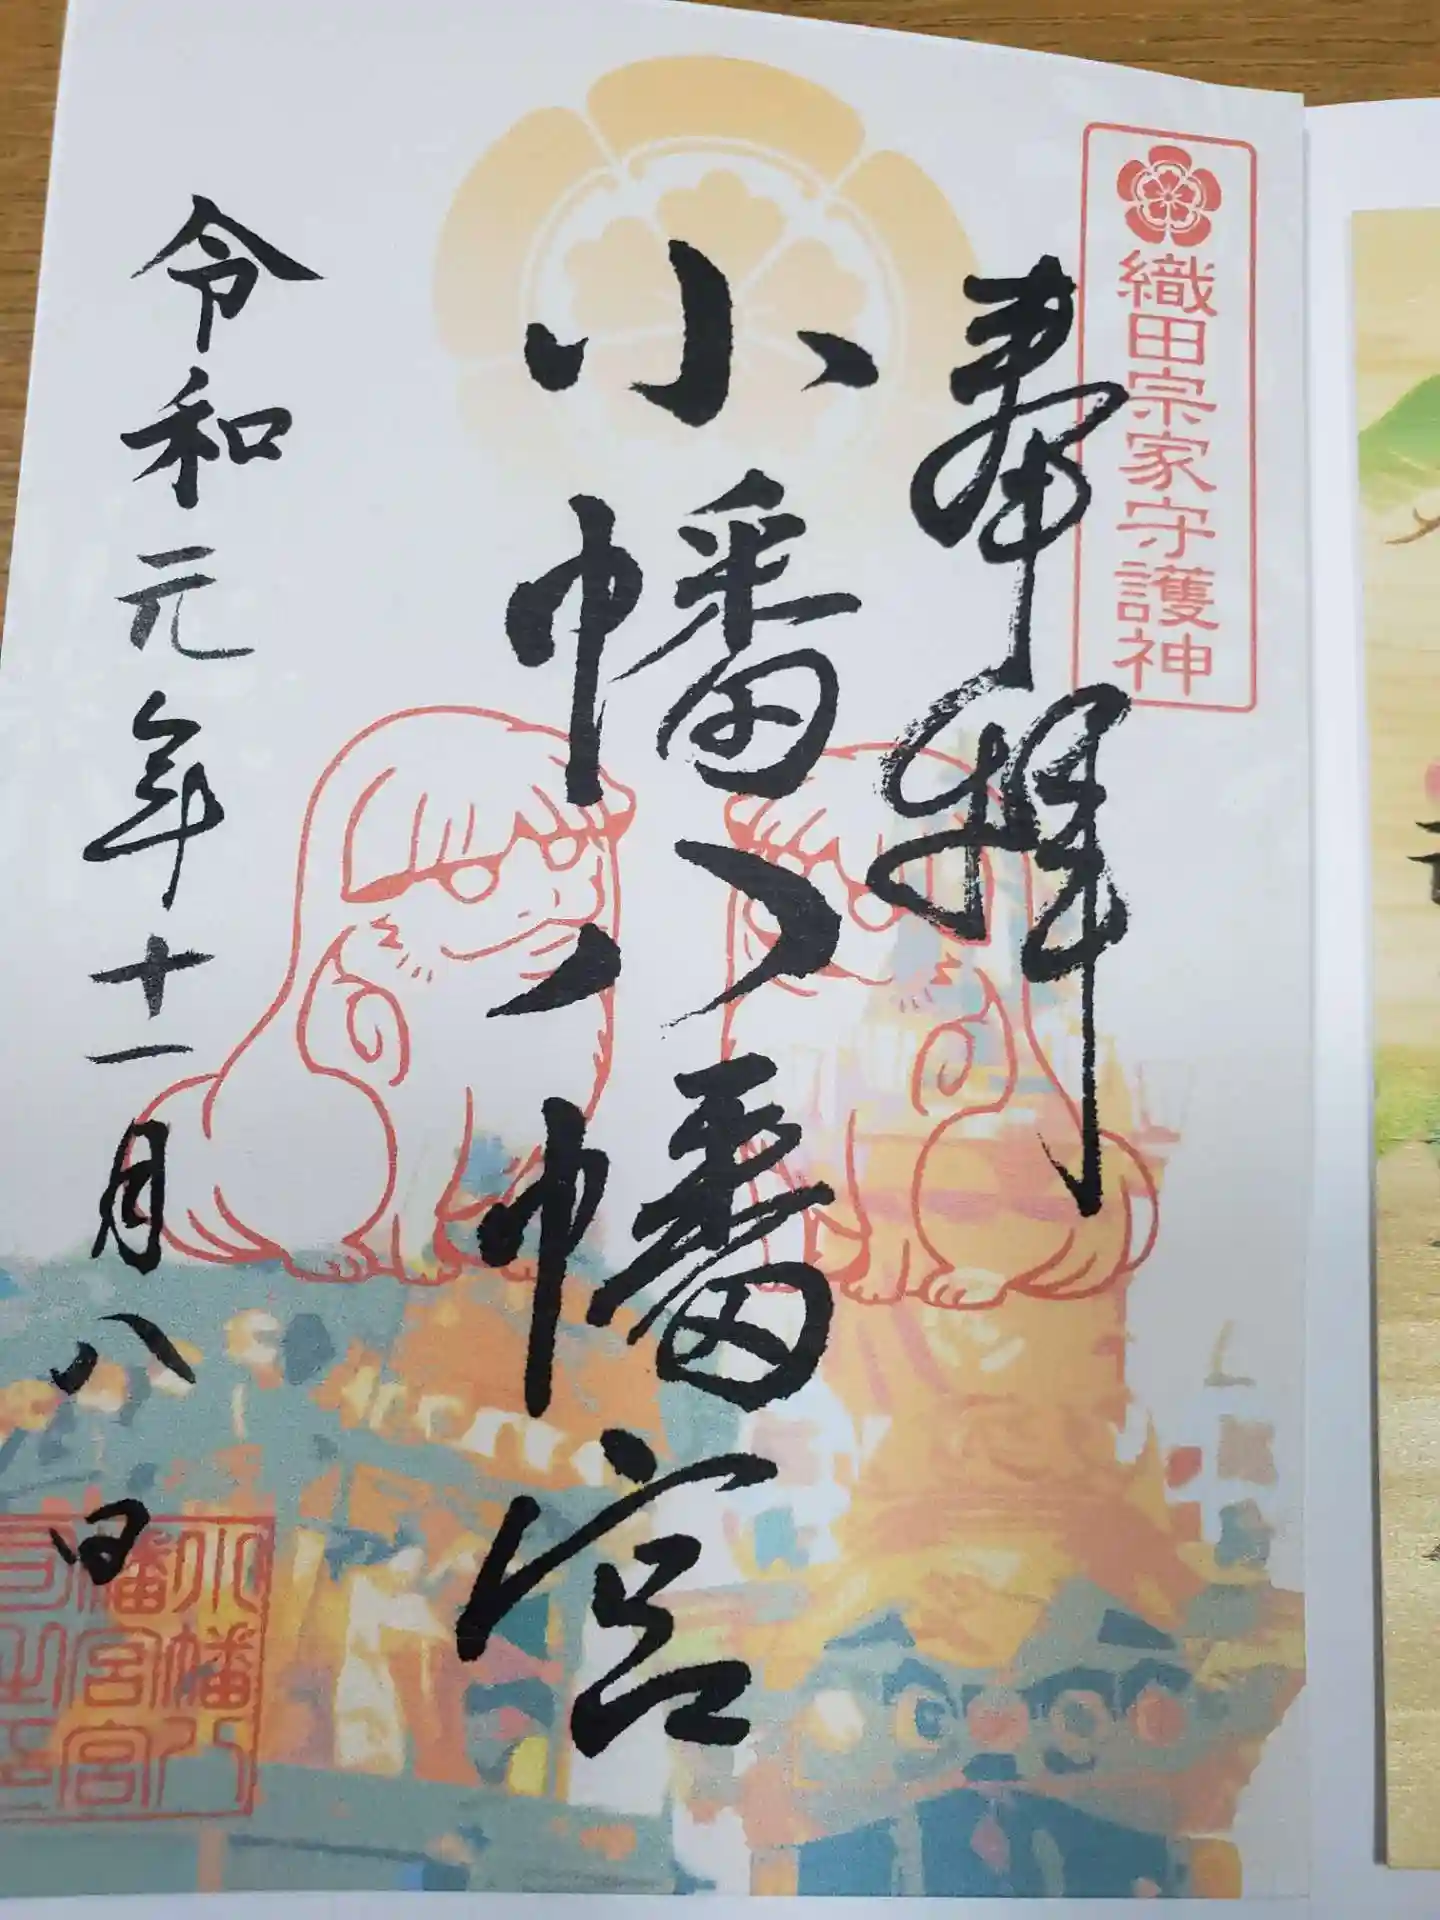 織田宗家守護神
奉拝
小幡八幡宮
令和元年十一月八日
小幡八
幡宮宮
司之印